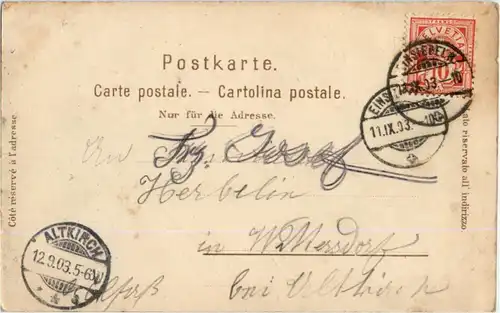 HELVETIA
10
EINSIEDELN
11.IX.03.-10
Postkarte.
Carte postale. — Cartolina postale.
Nur für die Adresse.
EINSIEDELN
11.IX.03.
An Josef
Herbelin
in Wittersdorf
bei Altkirch
Elsaß
ALTKIRCH
12.9.03.5-6N
Côté réservé à l'adresse.
Lato riservato all' indirizzo.